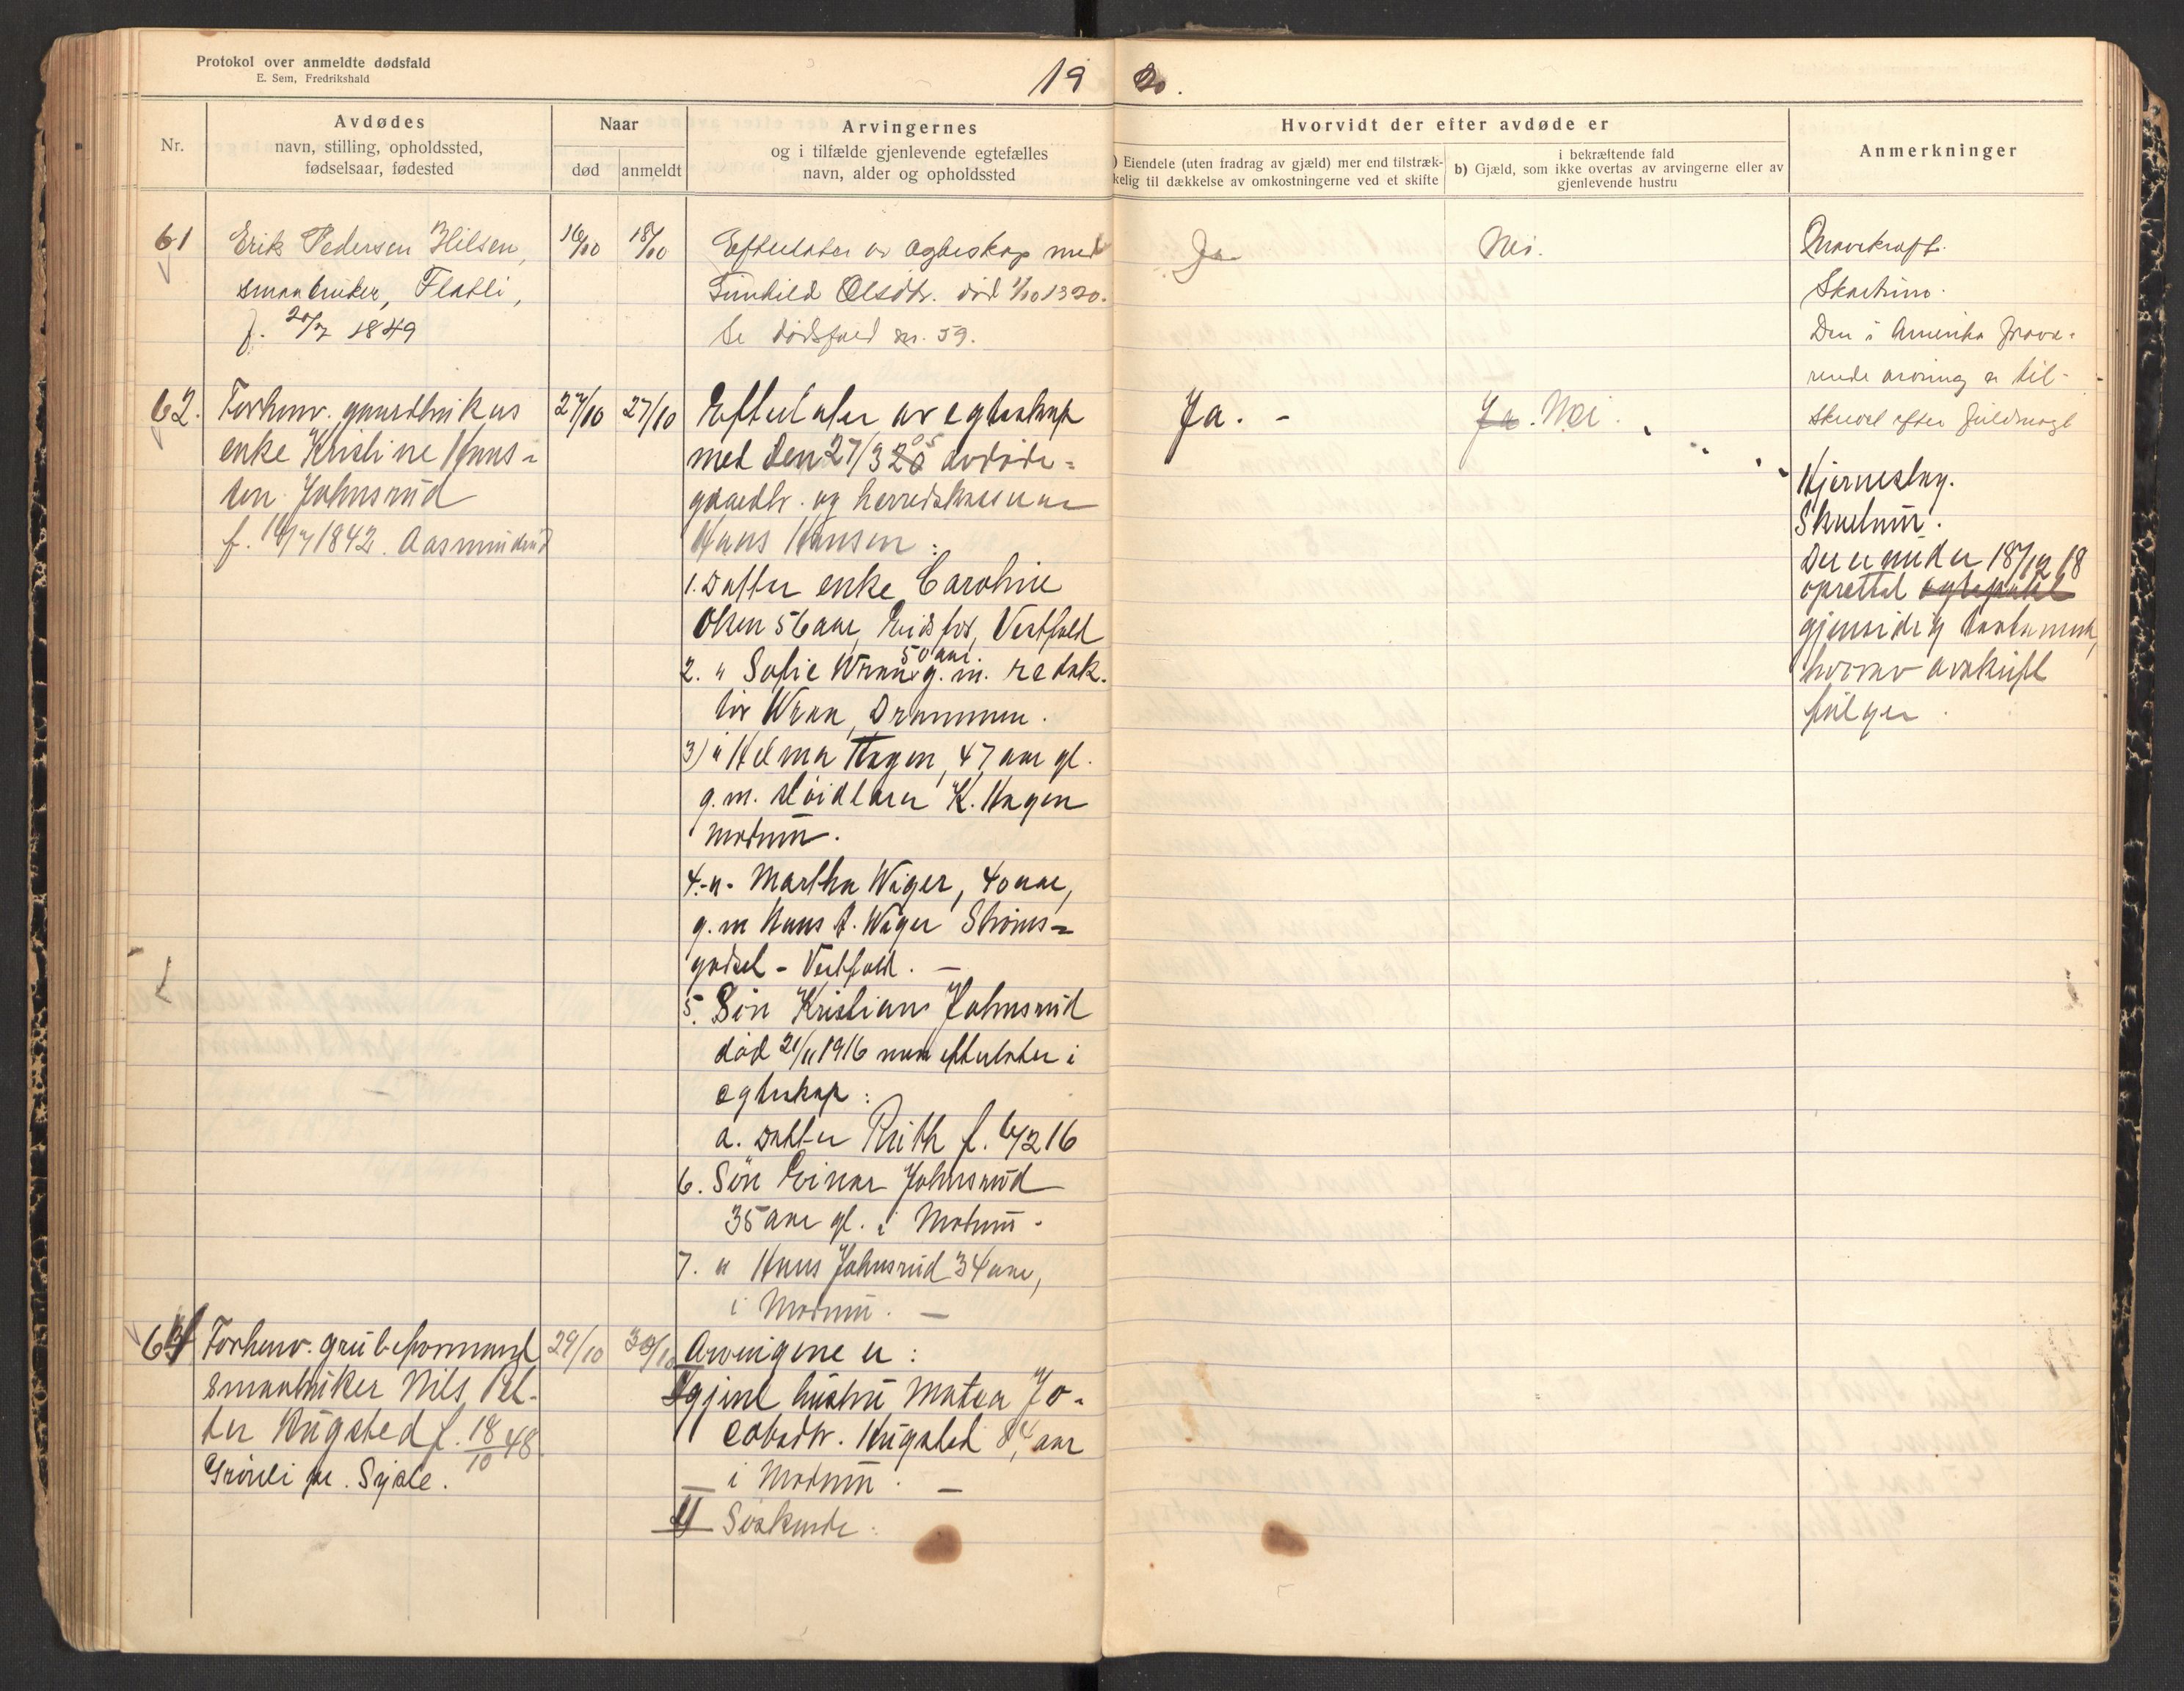 Protokol over anmeldte dødsfald
E. Sem, Fredrikshald
19 20.
Nr.
Avdødes
navn, stilling, opholdssted,
fødselsaar, fødested
Naar
død
anmeldt
Arvingernes
og i tilfælde gjenlevende egtefælles
navn, alder og opholdssted
Hvorvidt der efter avdøde er
) Eiendele (uten fradrag av gjæld) mer end tilstræk-
kelig til dækkelse av omkostningerne ved et skifte
i bekræftende fald
b) Gjæld, som ikke overtas av arvingerne eller av
gjenlevende hustru
Anmerkninger
61
Erik Pedersen Hilsen,
smaabruker, Flatli,
f. 20/7 1849
16/10
18/10
Efterlater av egteskap med
Gunhild Olsdtr. død 1/10 1920.
Se dødsfald nr. 59.
Ja
Nei.
Mavekræft.
Skartum.
Den i Amerika fravæ-
rende arving er til-
skrevet efter fuldmagt
62.
Forhenv. gaardbrukers
enke Kristine Hans-
den Johnsrud
f. 14/7 1842. Aasmundrud
27/10
27/10
Efterlater av egteskap
med den 27/3 05 avdøde
gaardbr. og herredskasserer
Hans Hansen:
1. Datter enke Caroline
Olsen 56 aar, Eidsfos, Vestfold
2. " Sofie Wraa 50 aar. g.m. redak-
tør Wraa, Drammen.
3) " Helma Hagen, 47 aar gl.
g.m. sløidlærer K. Hagen
Modum.
4.-"- Martha Wiger, 40 aar,
g.m Hans A. Wiger Strøms-
godset - Vestfold. -
5. Søn Kristian Johnsrud
død 21/11 1916 men efterlater i
egteskap:
a. Datter Ruth f. 6/2 16
6. Søn Einar Johnsrud
35 aar gl. i Modum -
7. " Hans Johnsrud 34 aar,
i Modum. -
Ja. -
Ja. Nei.
Hjerneslag.
Skartum.
Der er under 18/12 18
oprettet egtepakt
gjensidig testament,
hvorav avskrift
følger.
63
Forhenv. grubeformand
smaabruker Nils Pet-
ter Hugsted f. 18/10 48.
29/10
30/10
Arvingene er:
I gjenl hustru Matea Ja-
cobsdtr. Hugsted 84 aar
i Modum. -
II Søskende: